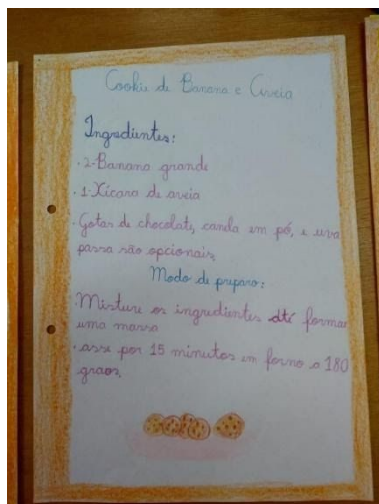 Cookie de Banana e Aveia
Ingredientes:
. 2-Banana grande
. 1-Xícara de aveia
. Gotas de chocolate, canela em pó, e uva
passa são opcionais,
Modo de preparo:
Misture os ingredientes até formar
uma massa
. asse por 15 minutos em forno a 180
graos,